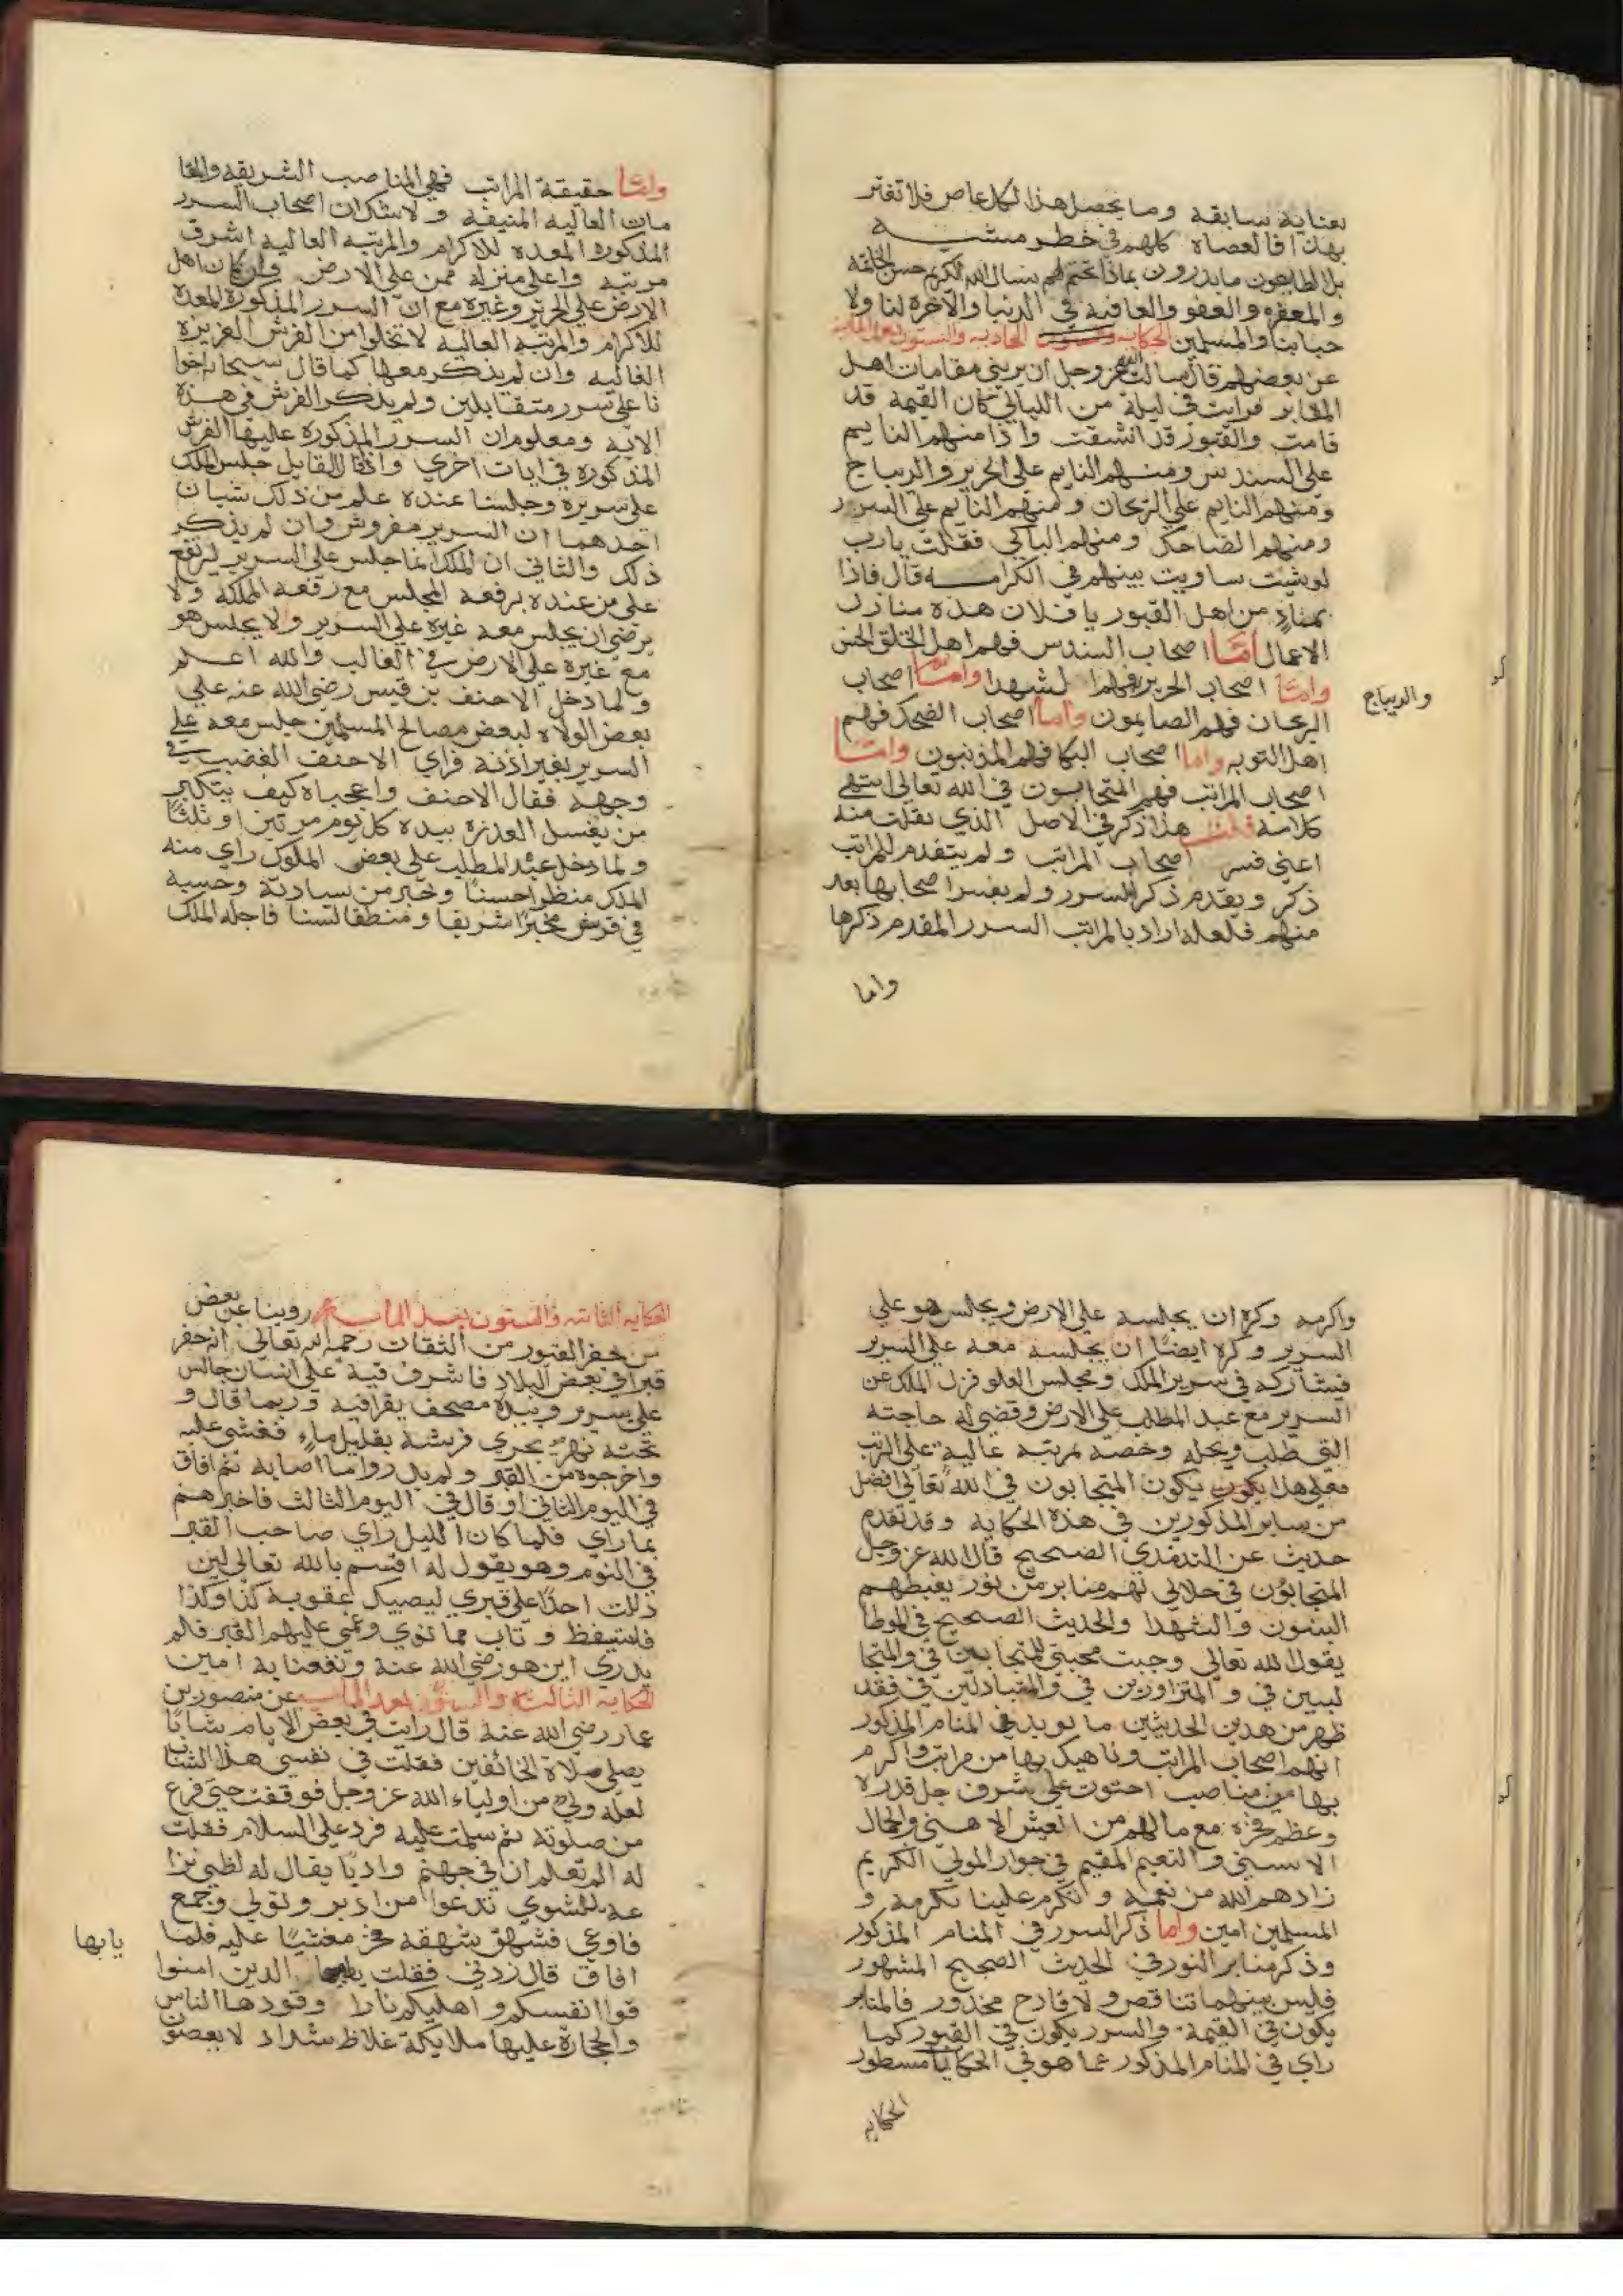 بعناية سابقة وما يحصل هذا لكل عاص فلا تغتر
بهذا فالعصاة كلهم في خطر مشيـــة
بل الطايعون ما يدرون بماذا يختم لهم نسال الله الكريم حسن الخاتمة
والمغفره والعفو والعافية في الدنيا والآخرة لنا ولا
حبابنا والمسلمين الحكاية الحاديه والستون بعد الماية
عن بعضهم قال سالت الله عز وجل ان يريني مقامات اهل
المقابر فرايت في ليلة من الليالي كان القيمة قد
قامت والقبور قد انشقت واذا منهم النايم
على السندس ومنهم النايم على الحرير والديباج
ومنهم النايم على الريحان ومنهم النايم على السرر
ومنهم الضاحك ومنهم الباكي فقلت يارب
لو شيت ساويت بينهم في الكرامـــه قال فاذا
بمنادٍ من اهل القبور يا فلان هذه منازل
الاعمال امّا اصحاب السندس فهم اهل الخلق الحسن
وامّا اصحاب الحرير فهم الشهدا وامّا اصحاب
والديباج
الريحان فهم الصايمون واما اصحاب الضحك فهم
اهل التوبه واما اصحاب البكا فهم المذنبون وامّا
اصحاب المراتب فهم المتحابون في الله تعالى انتهى
كلامه قلت هذا ذكر في الاصل الذي نقلت منه
اعني فسر اصحاب المراتب ولم يتقدم للمراتب
ذكر ويقدم ذكر السرر ولم يفسر اصحابها بعد
منهم فلعله اراد بالمراتب السرر المقدم ذكرها
واما
وامّا حقيقة المراتب فهي المناصب الشريفه والمقا
مات العاليه المنيفه ولا شك ان اصحاب السرر
المذكوره المعده للاكرام والمرتبه العاليه اشرف
مرتبه واعلى منزله ممن على الارض وان كان اهل
الارض على الحرير وغيره مع انّ السرر المذكورة المعدة
للاكرام والمرتبه العاليه لا تخلوا من الفرش العزيزة
الغاليه وان لم يذكر معها كما قال سبحانه اخوا
نا على سرر متقابلين ولم يذكر الفرش في هذه
الايه ومعلوم ان السرر المذكوره عليها الفرش
المذكوره في ايات اخري واذا قال القايل جلس الملك
على سريره وجلسنا عنده علم من ذلك شيان
احدهما ان السرير مفروش وان لم يذكر
ذلك والثاني ان الملك انما جلس على السرير ليرتفع
على من عنده برفعة المجلس مع رفعة المملكه ولا
يرضى ان يجلس معه غيره على السرير ولا يجلس هو
مع غيره على الارض في الغالب والله اعلم
ولما دخل الاحنف بن قيس رضي الله عنه على
بعض الولاه لبعض مصالح المسلمين جلس معه على
السرير بغير اذنه فراي الاحنف الغضب في
وجهه فقال الاحنف واعجباه كيف يتكبر
من يغسل العذرة بيده كل يوم مرتين او ثلثًا
ولما دخل عبد المطلب على بعض الملوك راي منه
الملك منظرا حسنًا وخبر من سيادته وحسبه
في قريش مخبرًا شريفا ومنطقا لسنا فاجله الملك
واكرمه وكره ان يجلسه على الارض ويجلس هو على
السرير وكره ايضًا ان يجلسه معه على السرير
فيشاركه في سرير الملك ومجلس العلو فنزل الملك عن
السرير مع عبد المطلب على الارض وقضى له حاجته
التي طلب وبجله وخصه بمرتبه عاليه على الرتب
فعلى هذا يكون يكون المتحابون في الله تعالى افضل
من ساير المذكورين في هذه الحكايه وقد تقدم
حديث عن الترمذي الصحيح قال الله عز وجل
المتحابون في جلالي لهم منابر من نور يغبطهم
النبيون والشهدا والحديث الصحيح في الموطا
يقول الله تعالى وجبت محبتي للمتحابين فيّ والمتجا
لسين فيّ والمتزاورين فيّ والمتباذلين فيّ فقد
ظهر من هذين الحديثين ما يويد في المنام المذكور
انهم اصحاب المراتب وناهيك بها من مراتب واكرم
بها من مناصب احتوت على شرف جل قدره
وعظم فخره مع مالهم من العيش الاهنى والجمال
الاسنى والنعيم المقيم في جوار المولى الكريم
زادهم الله من نعيمه وتكرم علينا بكرمه و
المسلمين امين واما ذكر السرر في المنام المذكور
وذكر منابر النور في الحديث الصحيح المشهور
فليس بينهما تناقص ولا قادح محذور فالمنابر
يكون في القيمة والسرر يكون في القبور كما
راي في المنام المذكور عما هو في الحكايات مسطور
الحكايه
الحكايه الثانيه والستون بعد المايه روينا عن بعض
من حفر القبور من الثقات رحمه الله تعالى انه حفر
قبرا في بعض البلاد فاشرف فيه على انسان جالس
على سرير وبيده مصحف يقرا فيه وربما قال و
تحته نهر يجري فرشه بقليل ماءٍ فغشي عليه
واخرجوه من القبر ولم يدروا ما اصابه ثم افاق
في اليوم الثاني او قال في اليوم الثالث فاخبرهم
بما راي فلما كان الليل راي صاحب القبر
في النوم وهو يقول له اقسم بالله تعالى لين
دللت احدًا على قبري ليصيبك عقوبة كذا وكذا
فاستيقظ وتاب مما نوي وعمي عليهم القبر فلم
يدري اين هو رضي الله عنه ونفعنا به امين
الحكايه الثالثه والستون بعد المايه عن منصور بن
عمار رضي الله عنه قال رايت في بعض الايام شابًا
يصلي صلاة الخائفين فقلت في نفسي هذا الشاب
لعله وليّ من اولياء الله عز وجل فوقفت حتى فرغ
من صلوته ثم سلمت عليه فرد علي السلام فقلت
له الم تعلم ان في جهنم واديًا يقال له لظي نزا
عة للشوي تدعوا من ادبر وتولي وجمع
فاوعي فشهق شهقه فخر مغشيًا عليه فلما
يايها
افاق قال زدني فقلت الذين امنوا
قوا انفسكم واهليكم نارا وقودها الناس
والحجارة عليها ملايكة غلاظ شداد لا يعصون